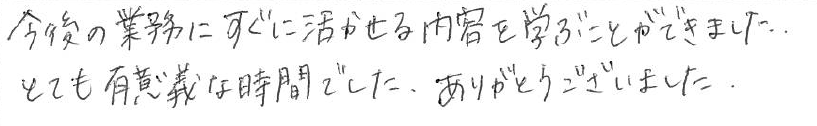 今後の業務にすぐに活かせる内容を学ぶことができました.
とても有意義な時間でした.ありがとうございました.